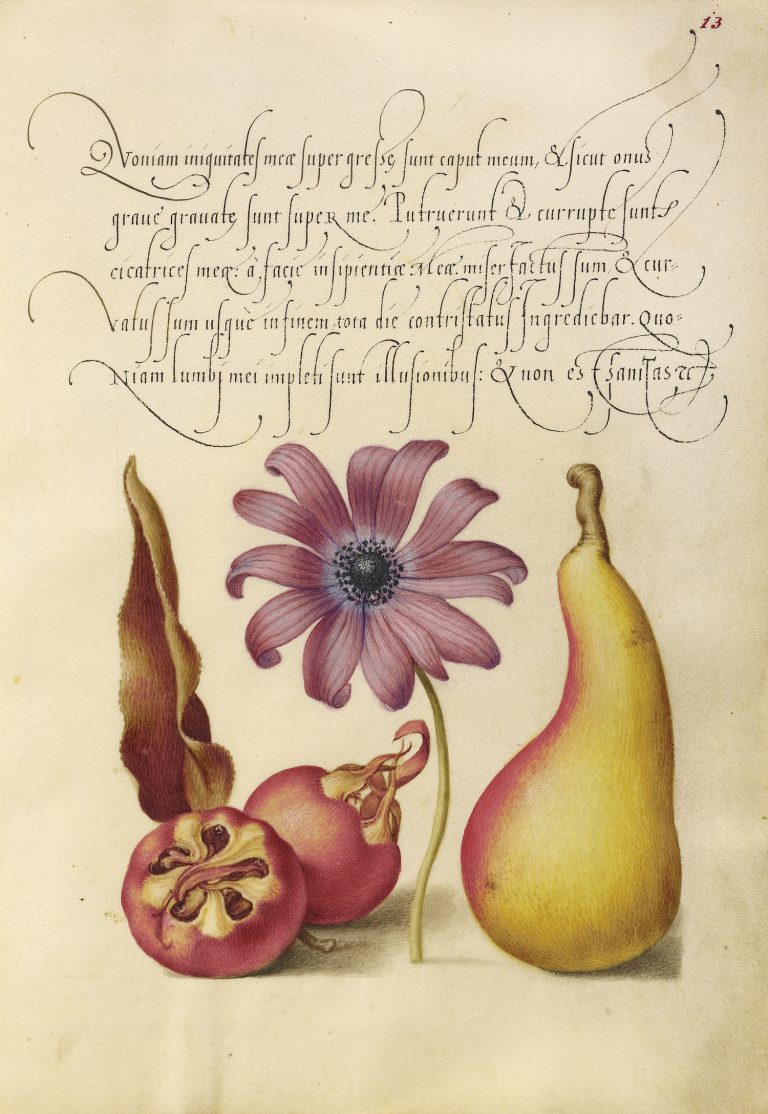 13
Quoniam iniquitates meæ supergressę sunt caput meum, & sicut onus
graue grauatę sunt super me. Putruerunt & currupte sunt
cicatrices meę: à facie insipientiæ Meæ. miser factus sum, & cur-
Vatus sum usquè in finem, tota die contristatus Ingrediebar. Quo-
Niam lumbi mei impleti sunt illusionibus: & non est sanitas &c